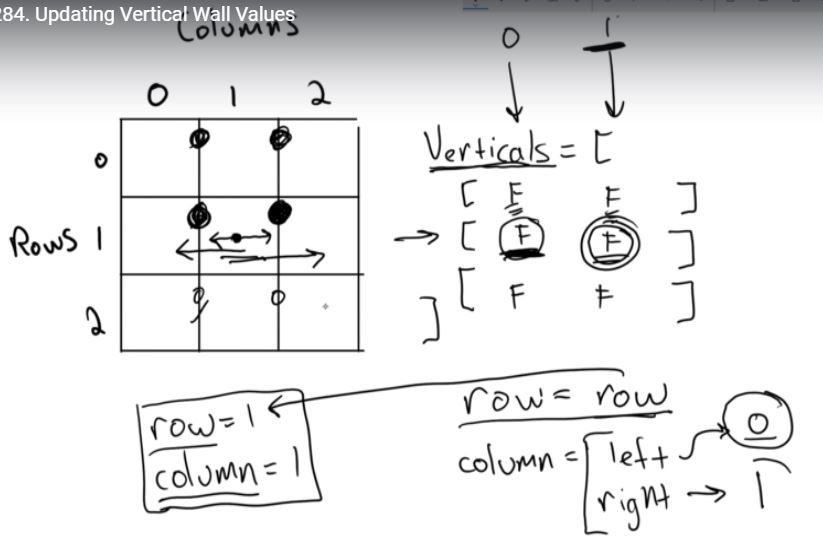 284. Updating Vertical Wall Values
Columns
0 1
0 1 2
0
Verticals = [
[ F F ]
Rows 1
→ [ F F ]
2
0 0
[ F F ]
]
row = 1
column = 1
row = row
column = [ left 0
right → 1